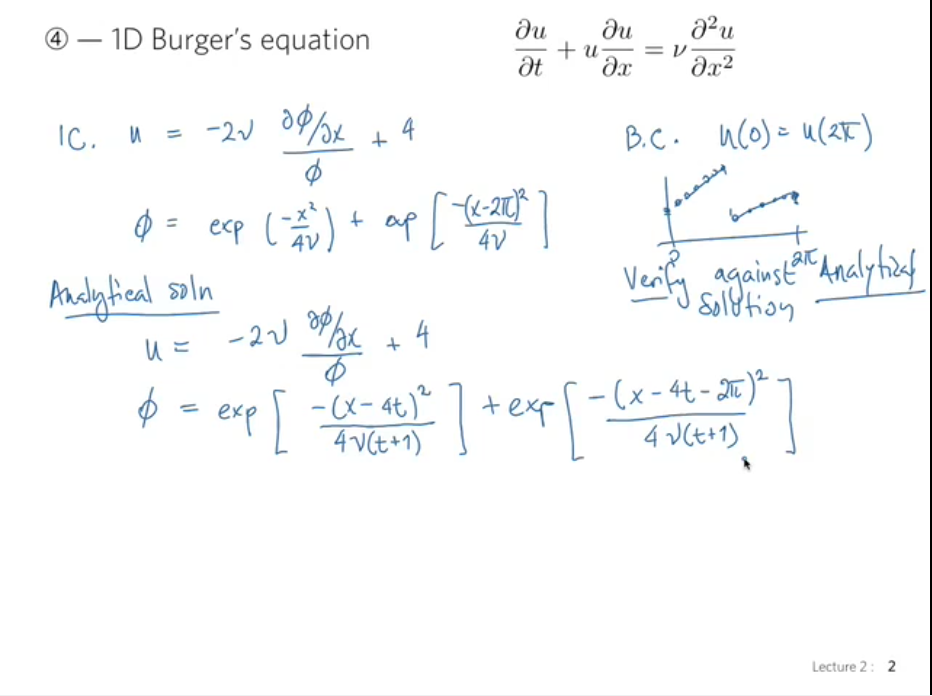 ④ — 1D Burger's equation
∂u/∂t + u ∂u/∂x = ν ∂²u/∂x²
IC. u = -2ν (∂φ/∂x)/φ + 4
B.C. u(0) = u(2π)
φ = exp (-x²/4ν) + exp [-(x-2π)²/4ν]
0 2π
Verify against Analytical
solution
Analytical soln
u = -2ν (∂φ/∂x)/φ + 4
φ = exp [-(x-4t)²/4ν(t+1)] + exp [-(x-4t-2π)²/4ν(t+1)]
Lecture 2: 2